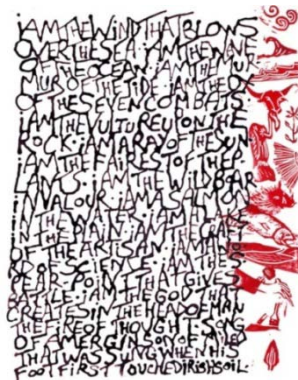 I AM THE WIND THAT BLOWS
OVER THE SEA. I AM THE WAVE
OF THE OCEAN. I AM THE MUR
MUR OF THE TIDE. I AM THE OX
OF THE SEVEN COMBATS.
I AM THE VULTURE UPON THE
ROCK. I AM A RAY OF THE SUN
I AM THE FAIREST OF THE P-
LANTS. I AM THE WILD BOAR
IN VALOUR. I AM A SALMON
IN THE WATER. I AM A LAKE
IN THE PLAIN. I AM THE CRAFT
OF THE ARTISAN. I AM A WORD
OF SCIENCE. I AM THE S
PEAR-POINT THAT GIVES
BATTLE. I AM THE GOD THAT
CREATES IN THE HEAD OF MAN
THE FIRE OF THOUGHT. SONG
OF AMERGIN SON OF MILED
THAT WAS SUNG WHEN HIS
FOOT FIRST TOUCHED IRISH SOIL.